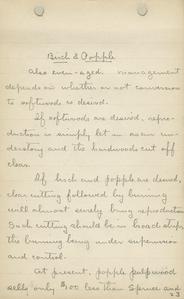 Birch & Popple
Also even-aged. Management
depends on whether or not conversion
to softwoods is desired.
If softwoods are desired, repro-
duction is simply let in as an
understory and the hardwoods cut off
clear.
If birch and popple are desired,
clear cutting followed by burning
will almost surely bring reproduction.
Such cutting should be in broad strips,
the burning being under supervision
and control.
At present, popple pulpwood
sells only $1.00 less than spruce and
23